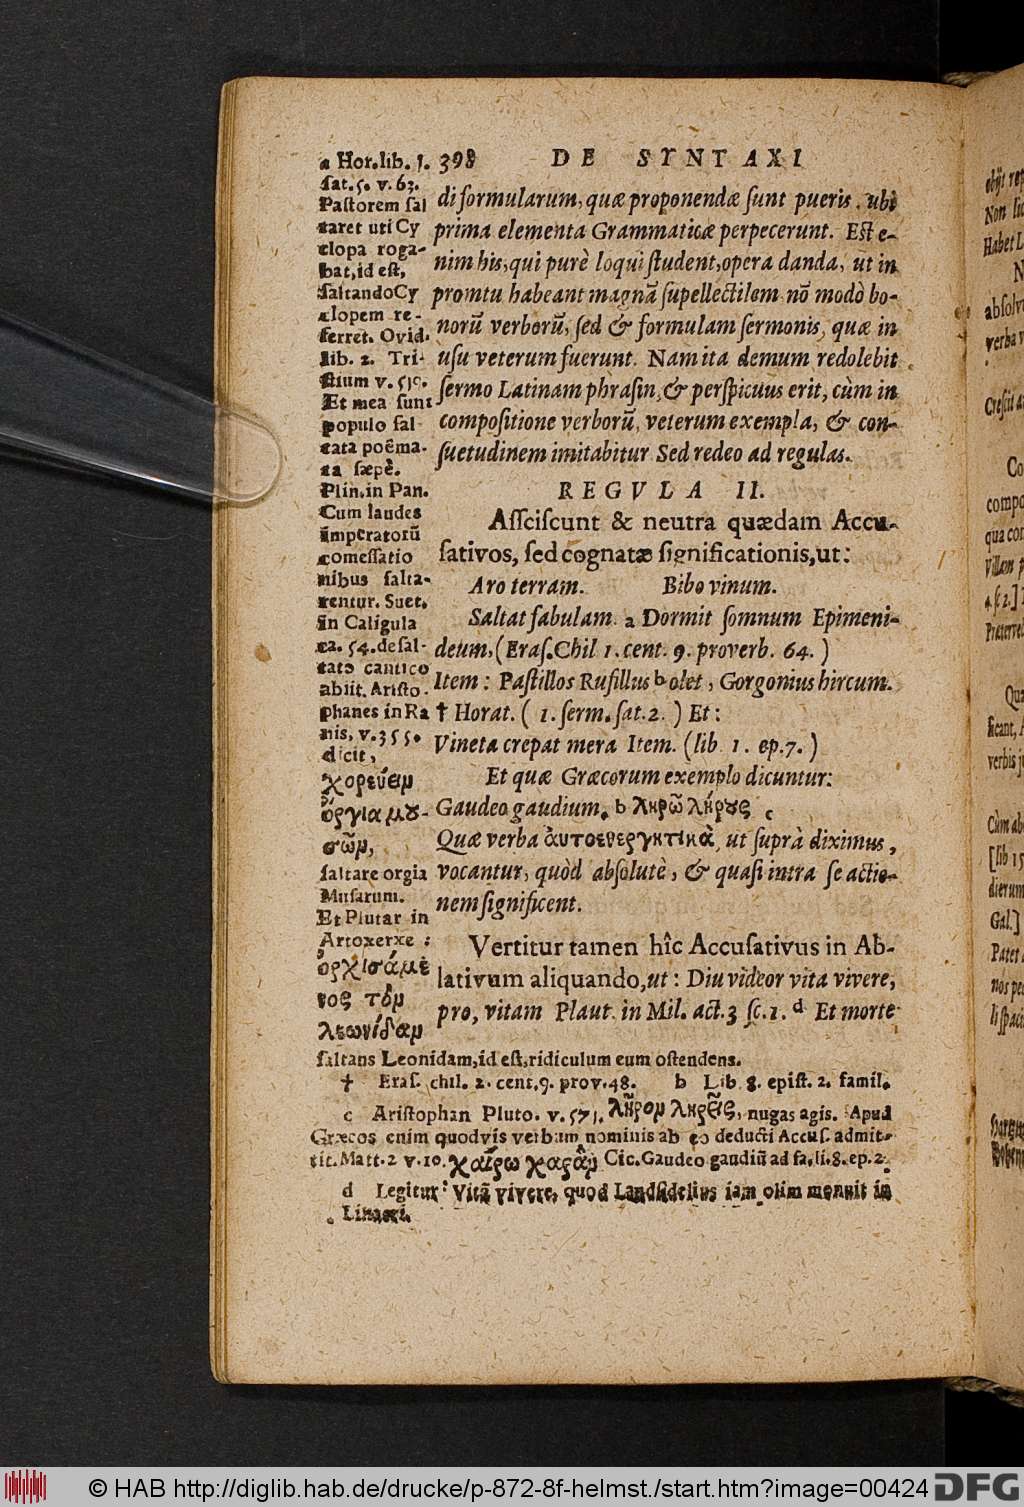 398 DE SYNTAXI
di formularum, quæ proponendæ sunt pueris, ubi
prima elementa Grammaticæ perpecerunt. Est e-
nim his, qui purè loqui student, opera danda, ut in
promtu habeant magnã supellectilem nõ modò bo-
norũ verborũ, sed & formulam sermonis, quæ in
usu veterum fuerunt. Nam ita demum redolebit
sermo Latinam phrasin, & perspicuus erit, cùm in
compositione verborũ, veterum exempla, & con-
suetudinem imitabitur. Sed redeo ad regulas.
REGULA II.
Assciscunt & neutra quædam Accu-
sativos, sed cognatæ significationis, ut:
Aro terram. Bibo vinum.
Saltat fabulam. a Dormit somnum Epimeni-
deum, (Eras. Chil 1. cent. 9. proverb. 64.)
Item: Pastillos Rufillus b olet, Gorgonius hircum.
† Horat. (1. serm. sat. 2.) Et:
Vineta crepat mera Item. (lib. 1. ep. 7.)
Et quæ Græcorum exemplo dicuntur:
Gaudeo gaudium. b ληρῶ λήρους c
Quæ verba ἀυτοενεργητικὰ, ut suprà diximus,
vocantur, quòd absolutè, & quasi intra se actio-
nem significent.
Vertitur tamen hîc Accusativus in Ab-
lativum aliquando, ut: Diu videor vita vivere,
pro, vitam Plaut. in Mil. act. 3 sc. 1. d Et morte
a Hor. lib. 1.
sat. 5. v. 63.
Pastorem sal
taret uti Cy
clopa roga-
bat, id est,
saltando Cy
clopem re-
ferret. Ovid.
lib. 2. Tri-
stium v. 519.
Et mea sunt
populo sal-
tata poëma-
ta sæpè.
Plin. in Pan.
Cum laudes
imperatorũ
comessatio
nibus salta-
rentur. Suet.
in Caligula
ca. 54. desal-
tato cantico
abiit. Aristo-
phanes in Ra
nis, v. 355.
dicit,
χορεύειν
ὄργια μου-
σῶν,
saltare orgia
Musarum.
Et Plutar in
Artoxerxe:
ὀρχισάμε
νος τὸν
λεωνίδαν
saltans Leonidam, id est, ridiculum eum ostendens.
† Eras. chil. 2. cent. 9. prov. 48. b Lib. 8. epist. 2. famil.
c Aristophan Pluto. v. 571. λῆρον ληρεῖς, nugas agis. Apud
Græcos enim quodvis verbum nominis ab eo deducti Accus. admit-
tit. Matt. 2 v. 10. χαίρω χαρὰν Cic. Gaudeo gaudiũ ad fa. li. 8. ep. 2.
d Legitur: Vitã vivere, quod Landsidelius iam olim monuit in
Linacri.
© HAB http://diglib.hab.de/drucke/p-872-8f-helmst./start.htm?image=00424 DFG